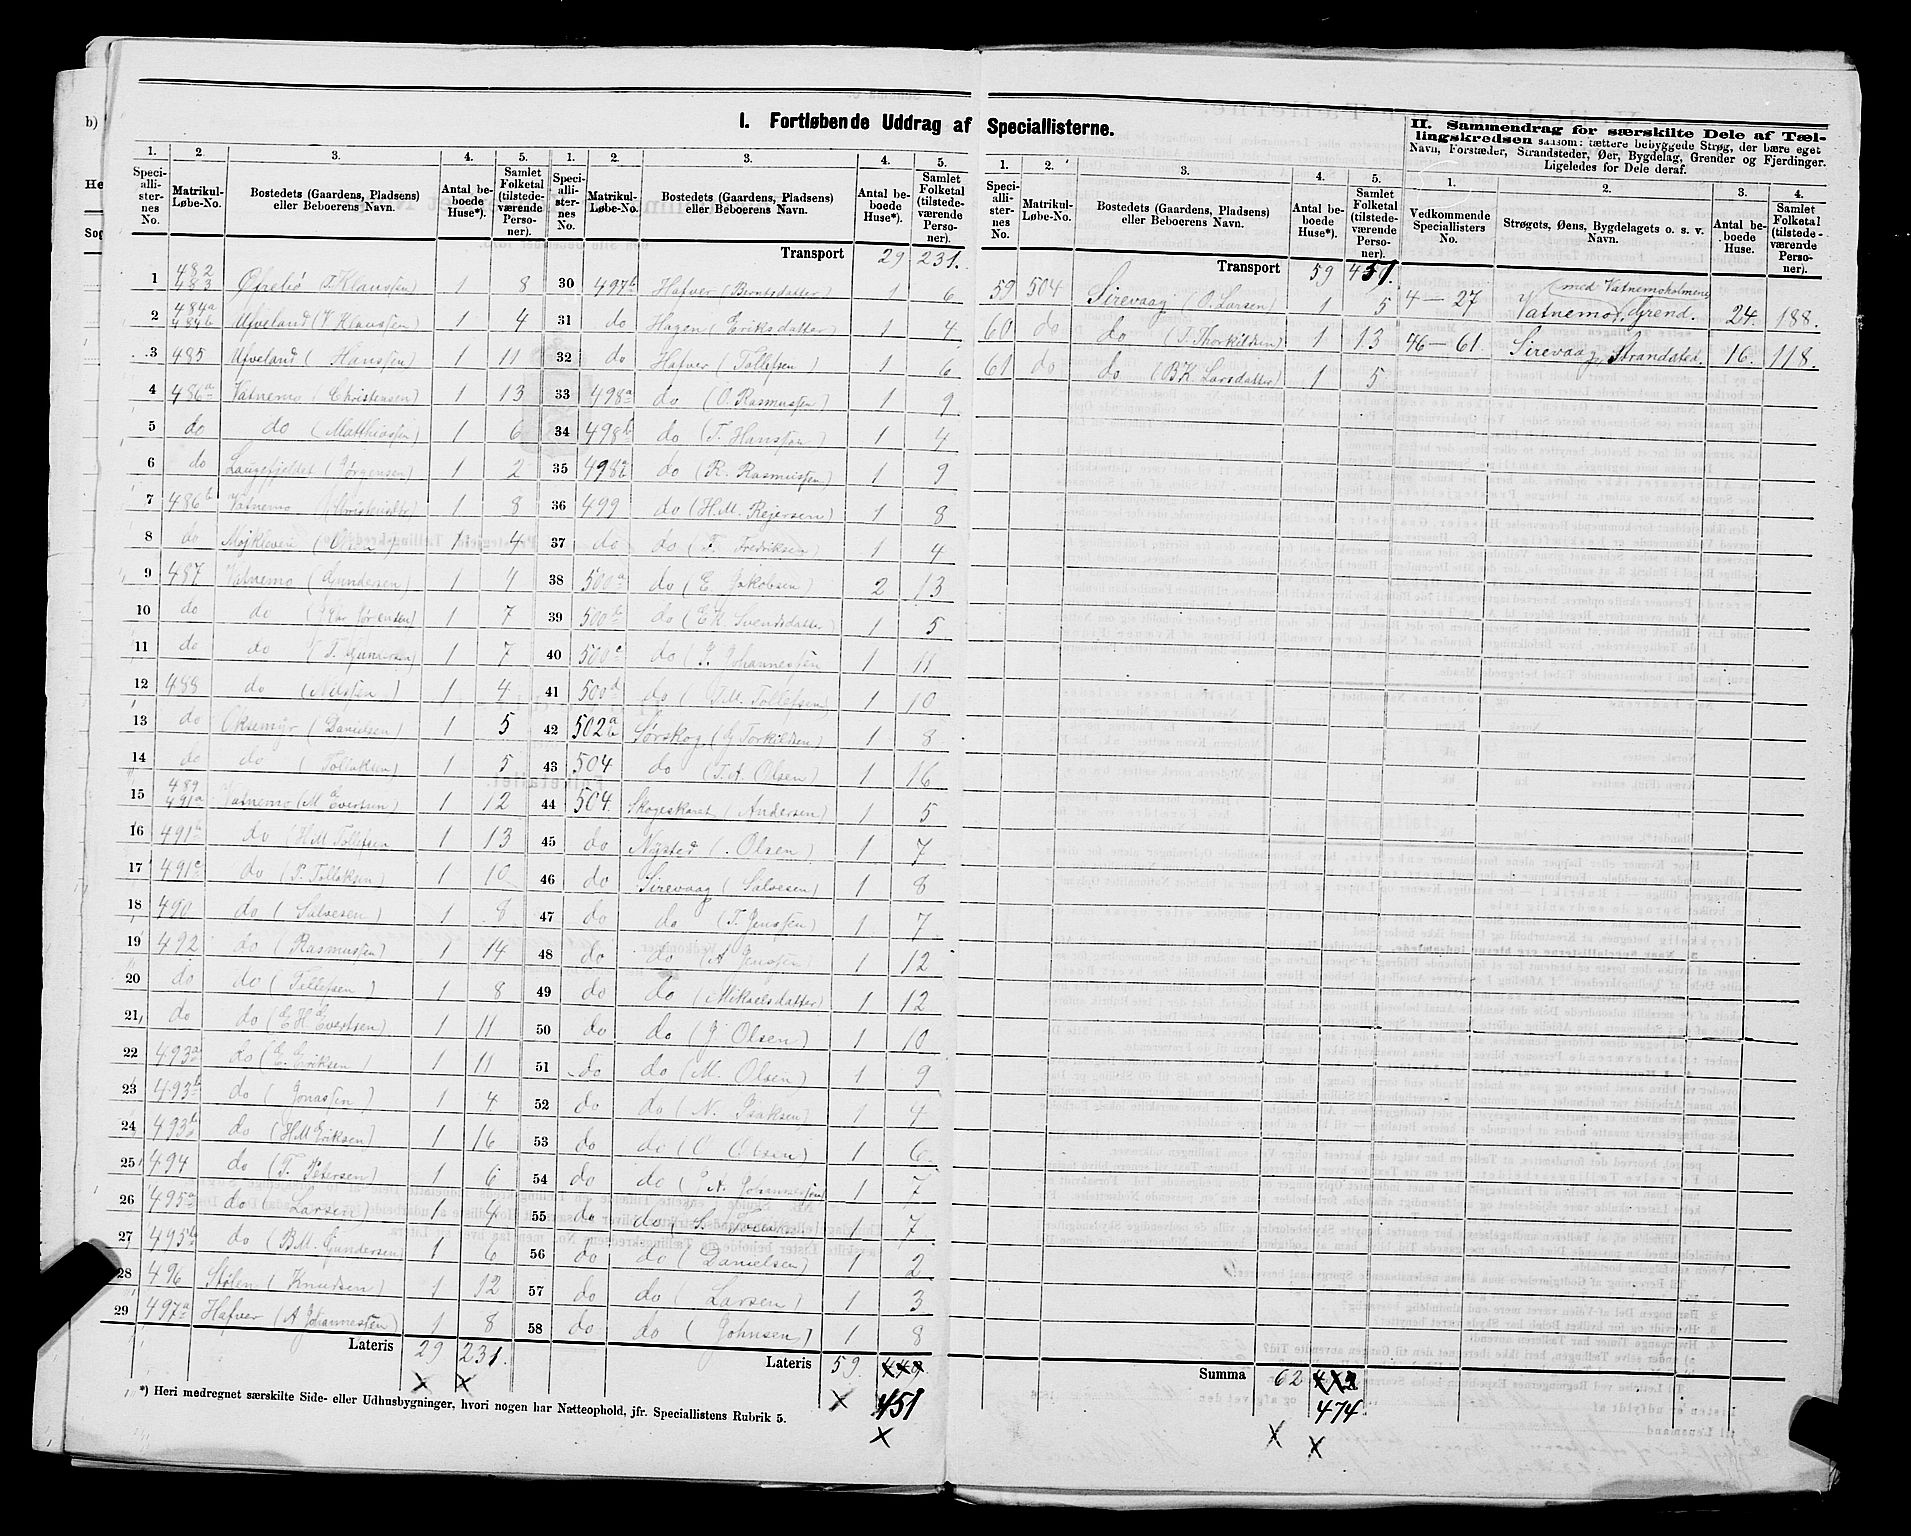 I. Fortløbende Uddrag af Speciallisterne.
1. 2. 3. 4. 5.
Speciallisternes No. Matrikul-Løbe-No. Bostedets (Gaardens, Pladsens) eller Beboerens Navn. Antal beboede Huse*). Samlet Folketal (tilstedeværende Personer).
1 482 483 Øfrebø (T. Klaussen) 1 8
2 484a 484b Ufveland (V Klaussen) 1 4
3 485 Ufveland (Hanssen) 1 11
4 486a Vatnemo (Christensen) 1 13
5 do do (Matthiassen) 1 6
6 do Laugefjeldet (Jørgensen) 1 2
7 486b Vatnemo 1 8
8 do Mojkleven 1 4
9 487 Vatnemo (Gundersen) 1 4
10 do do 1 7
11 do do (T. Gundersen) 1 7
12 488 do (Nilssen) 1 4
13 do Oksemyr (Danielsen) 1 5
14 do do (Tollaksen) 1 5
15 489 491a Vatnemo (M Evertsen) 1 12
16 491b do (H M Tollefsen 1 13
17 491c do (T. Tollaksen) 1 10
18 490 do (Salvesen) 1 8
19 492 do (Rasmussen) 1 14
20 do do (Tellefsen) 1 8
21 do do (E H Evertsen) 1 11
22 493a do (E. Eriksen) 1 11
23 493b do (Jonassen) 1 4
24 493b do (H M Eriksen) 1 16
25 494 do (T. Petersen) 1 6
26 495a do (Larsen) 1 4
27 495b do (B M. Gundersen) 1 6
28 496 Stølen (Knudsen) 1 12
29 497a Hafver (A Johannessen) 1 8
Lateris 29 231.
*) Heri medregnet særskilte Side- eller Udhusbygninger, hvori nogen har Natteophold, jfr. Speciallistens Rubrik 5.
1. 2. 3. 4. 5.
Speciallisternes No. Matrikul-Løbe-No. Bostedets (Gaardens, Pladsens) eller Beboerens Navn. Antal beboede Huse*). Samlet Folketal (tilstedeværende Personer).
Transport 29 231.
30 497b Hafver (Berntsdatter) 1 6
31 do Hagen (Eriksdatter) 1 4
32 do Hafver (Tollefsen) 1 6
33 498a do (O. Rasmussen) 1 9
34 498b do (T. Hanssen) 1 4
35 498b do (R. Rasmussen) 1 9
36 499 do (H. M. Rejersen) 1 8
37 do do (T. Fredriksen) 1 4
38 500a do (E. Jakobsen) 2 13
39 500b do (E K. Svendsdatter) 1 5
40 500c do (J. Johannessen 1 11
41 500d do (T. M. Tollefsen) 1 10
42 502a b Sørskog (G Torkildsen) 1 8
43 504 do (T. A. Olsen) 1 16
44 504. Skogeskaret (Andersen) 1 5
45 do Nysted (Olsen) 1 7
46 do Sirevaag (Salvesen) 1 8
47 do do (T. Jenssen) 1 7
48 do do (A Jenssen 1 12
49 do do (Mikaelsdatter) 1 12
50 do do (J Olsen) 1 10
51 do do (M. Olsen) 1 9
52 do do (N. Isaksen) 1 4
53 do do (O Olsen) 1 6
54 do do (J. A. Johannessen) 1 7
55 do do 1 7
56 do do (Danielsen) 1 2
57 do do (Larsen) 1 3
58 do do (Johnsen) 1 8
Lateris 59. 449.
451
1. 2. 3. 4. 5.
Speciallisternes No. Matrikul-Løbe-No. Bostedets (Gaardens, Pladsens) eller Beboerens Navn. Antal beboede Huse*). Samlet Folketal (tilstedeværende Personer).
Transport 59 451.
59 504 Sirevaag (O. Larsen) 1 5
60 do do (T. Thorkildsen) 1 13
61 do do (B K. Larsdatter) 1 5
Summa 62
474.
II. Sammendrag for særskilte Dele af Tællingskredsen saasom: tættere bebyggede Strøg, der bære eget Navn, Forstæder, Strandsteder, Øer, Bygdelag, Grender og Fjerdinger. Ligeledes for Dele deraf.
1. 2. 3. 4.
Vedkommende Speciallisters No. Strøgets, Øens, Bygdelagets o. s. v. Navn. Antal beboede Huse. Samlet Folketal (tilstedeværende Personer).
(med Vatnemoholmene
4 — 27 Vatnemo, Grend. 24. 188.
46 — 61. Sirevaag, Strandsted. 16. 118.